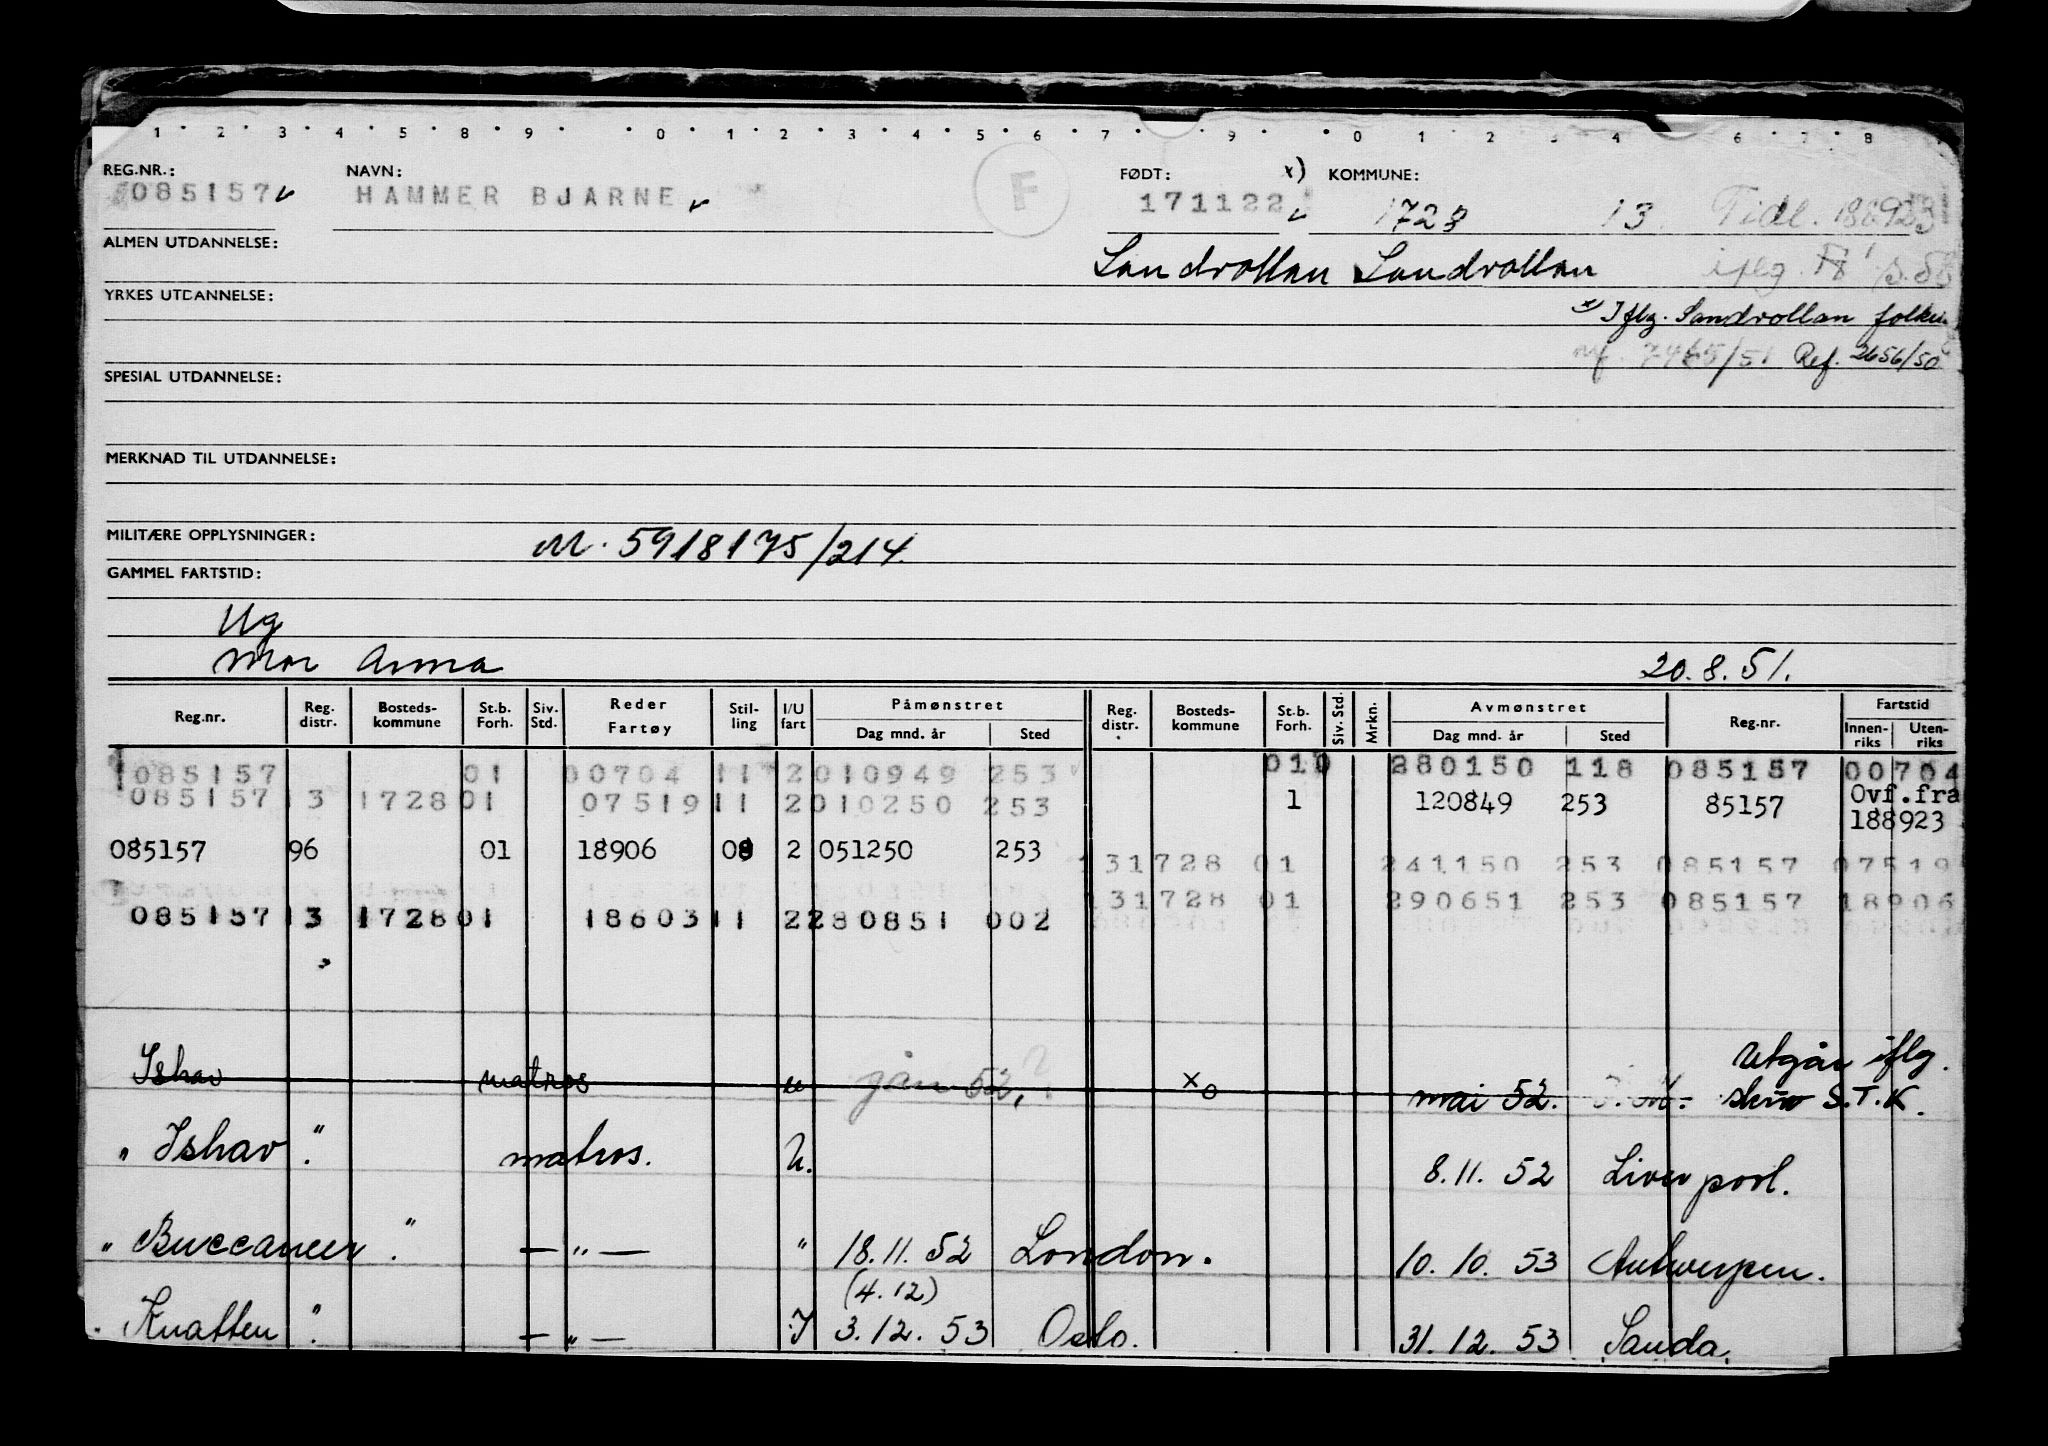 1 · 2 · 3 · 4 · 5 · 8 · 9 · · 0 · 1 · 2 · 3 · 4 · 5 · 6 · 7 · · 9 · · 0 1 2 3 4 · 6 · 7 · 8
REG.NR.: NAVN: FØDT: x) KOMMUNE:
085157 HAMMER BJARNE F 171122 1728 13 Tidl. 188923
ALMEN UTDANNELSE:
Sandvollan Sandvollan iflg.
YRKES UTDANNELSE:
x) Iflg. Sandvollan folker
mf. 7465/51 Ref. 2656/50
SPESIAL UTDANNELSE:
MERKNAD TIL UTDANNELSE:
MILITÆRE OPPLYSNINGER: M. 5918175/214.
GAMMEL FARTSTID:
Ug
Mor Anna 20.8.51.
Reg.nr. Reg. distr. Bosteds-kommune St.b. Forh. Siv. Std. Reder Fartøy Stil-ling I/U fart Påmønstret Dag mnd. år Sted Reg. distr. Bosteds-kommune St.b. Forh. Siv. Std. Mrkn. Avmønstret Dag mnd. år Sted Reg.nr. Fartstid Innen-riks Uten-riks
085157 01 00704 11 2 010949 253 010 280150 118 085157 00704
085157 13 1728 01 07519 11 2 010250 253 1 120849 253 85157 Ovf.fra
188923
085157 96 01 18906 08 2 051250 253 131728 01 241150 253 085157 07519
131728 01 290651 253 085157 18906
085157 13 1728 01 18603 11 2 280851 002
Utgår iflg.
Ishav matros u jan 52, ? xo mai 52. skriv S.T.K.
" Ishav ". matros. U. 8.11.52 Liverpool.
" Buccaneer ". — " — " 18.11.52 London. 10.10.53 Antwerpen.
(4.12)
" Knatten ". — " — I 3.12.53 Oslo. 31.12.53 Sauda.